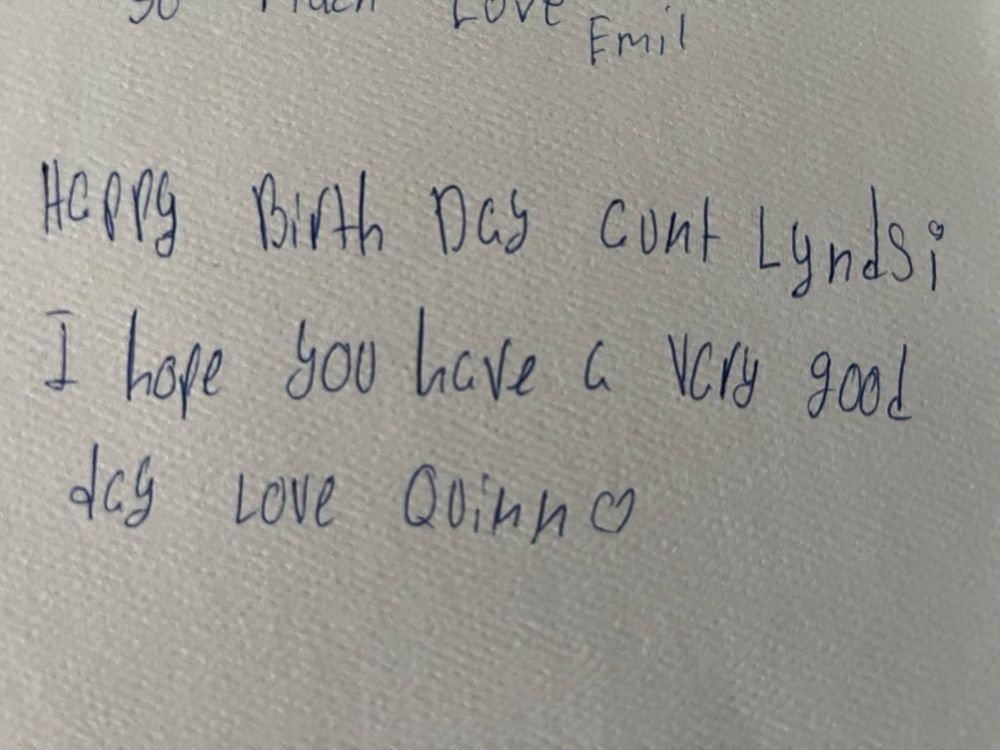 so Much Love
Emil
Happy Birth Day aunt Lyndsi
I hope you have a very good
day Love Quinn ♡